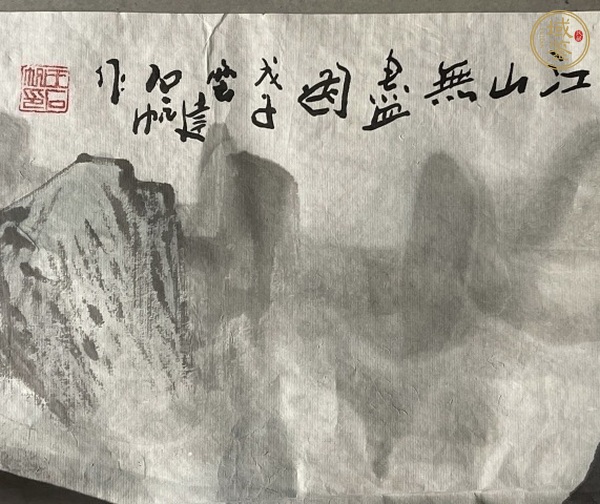 江山無盡圖
戊子
石帆
作
王石帆印